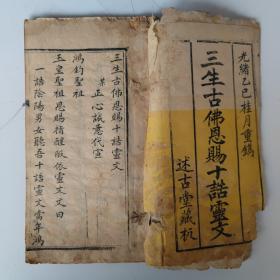 光緒乙巳桂月重鐫
三生古佛恩賜十誥靈文
述古堂藏板
三生古佛恩賜十誥靈文
業正心誠意代宣
鴻鈞聖祖
玉皇聖祖恩賜醒皈依靈文文曰
一誥陰陽男女聽吾十誥靈文當年鴻